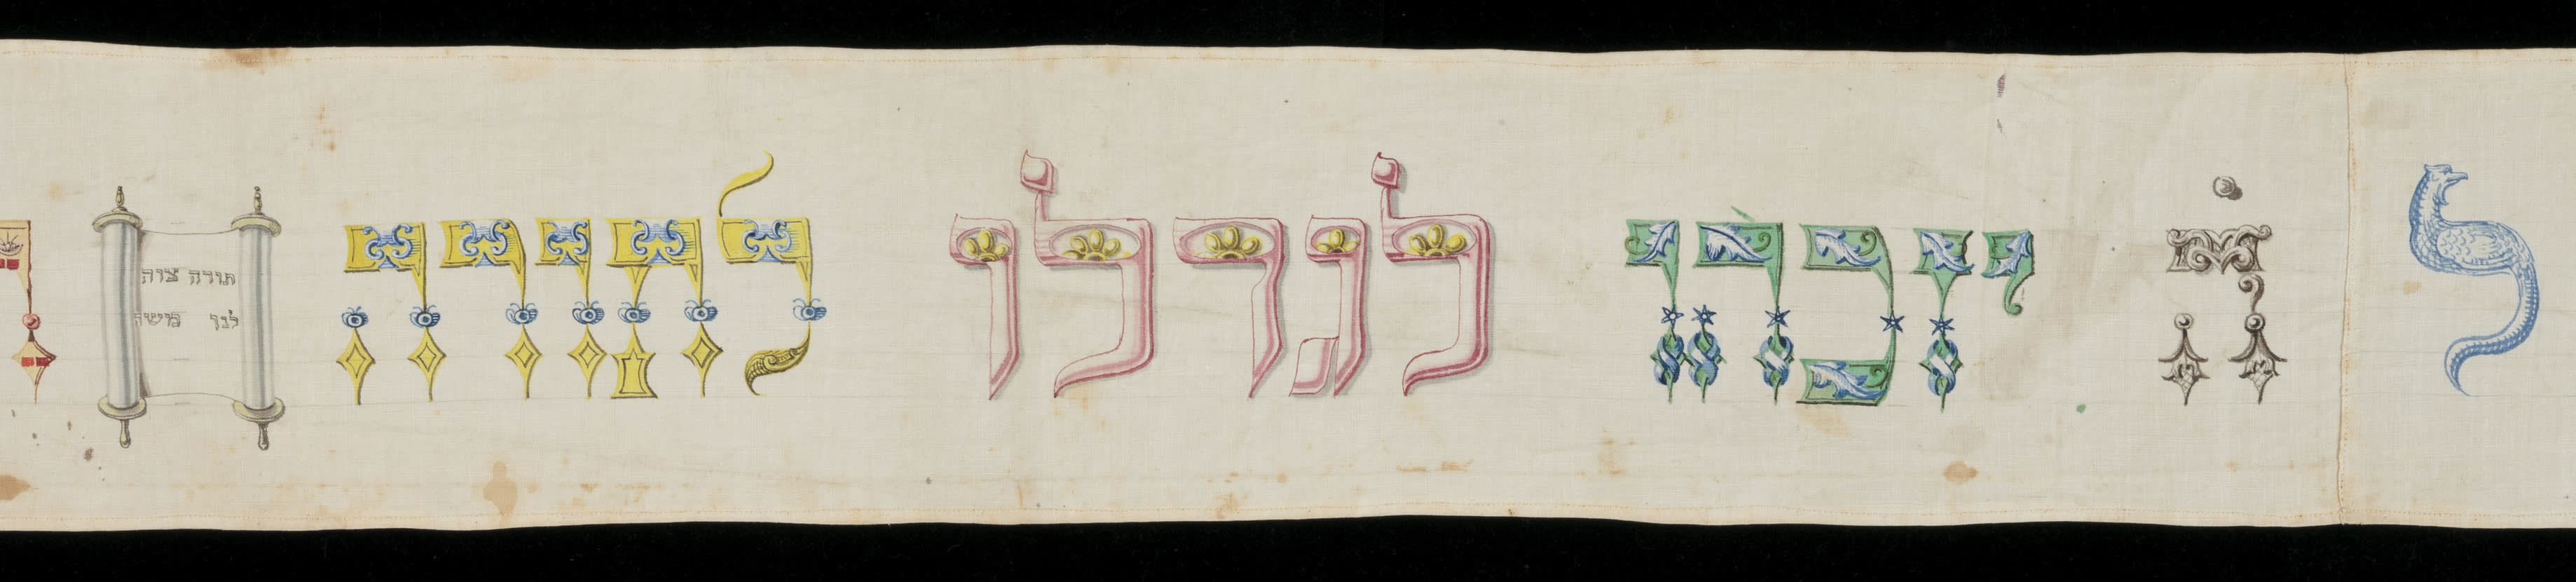 ל ה׳ יזכהו לגדלו לתורה
תורה צוה
לנו משה